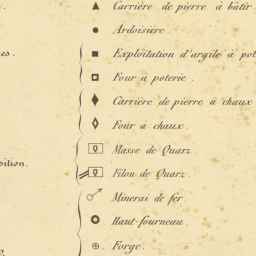 Carrière de pierre à bâtir
Ardoisière
es.
Exploitation d'argile à pot
Four à poterie.
Carrière de pierre à chaux
Four à chaux.
Masse de Quarz
sition.
Filon de Quarz
Minerai de fer
Haut-fourneau.
Forge.